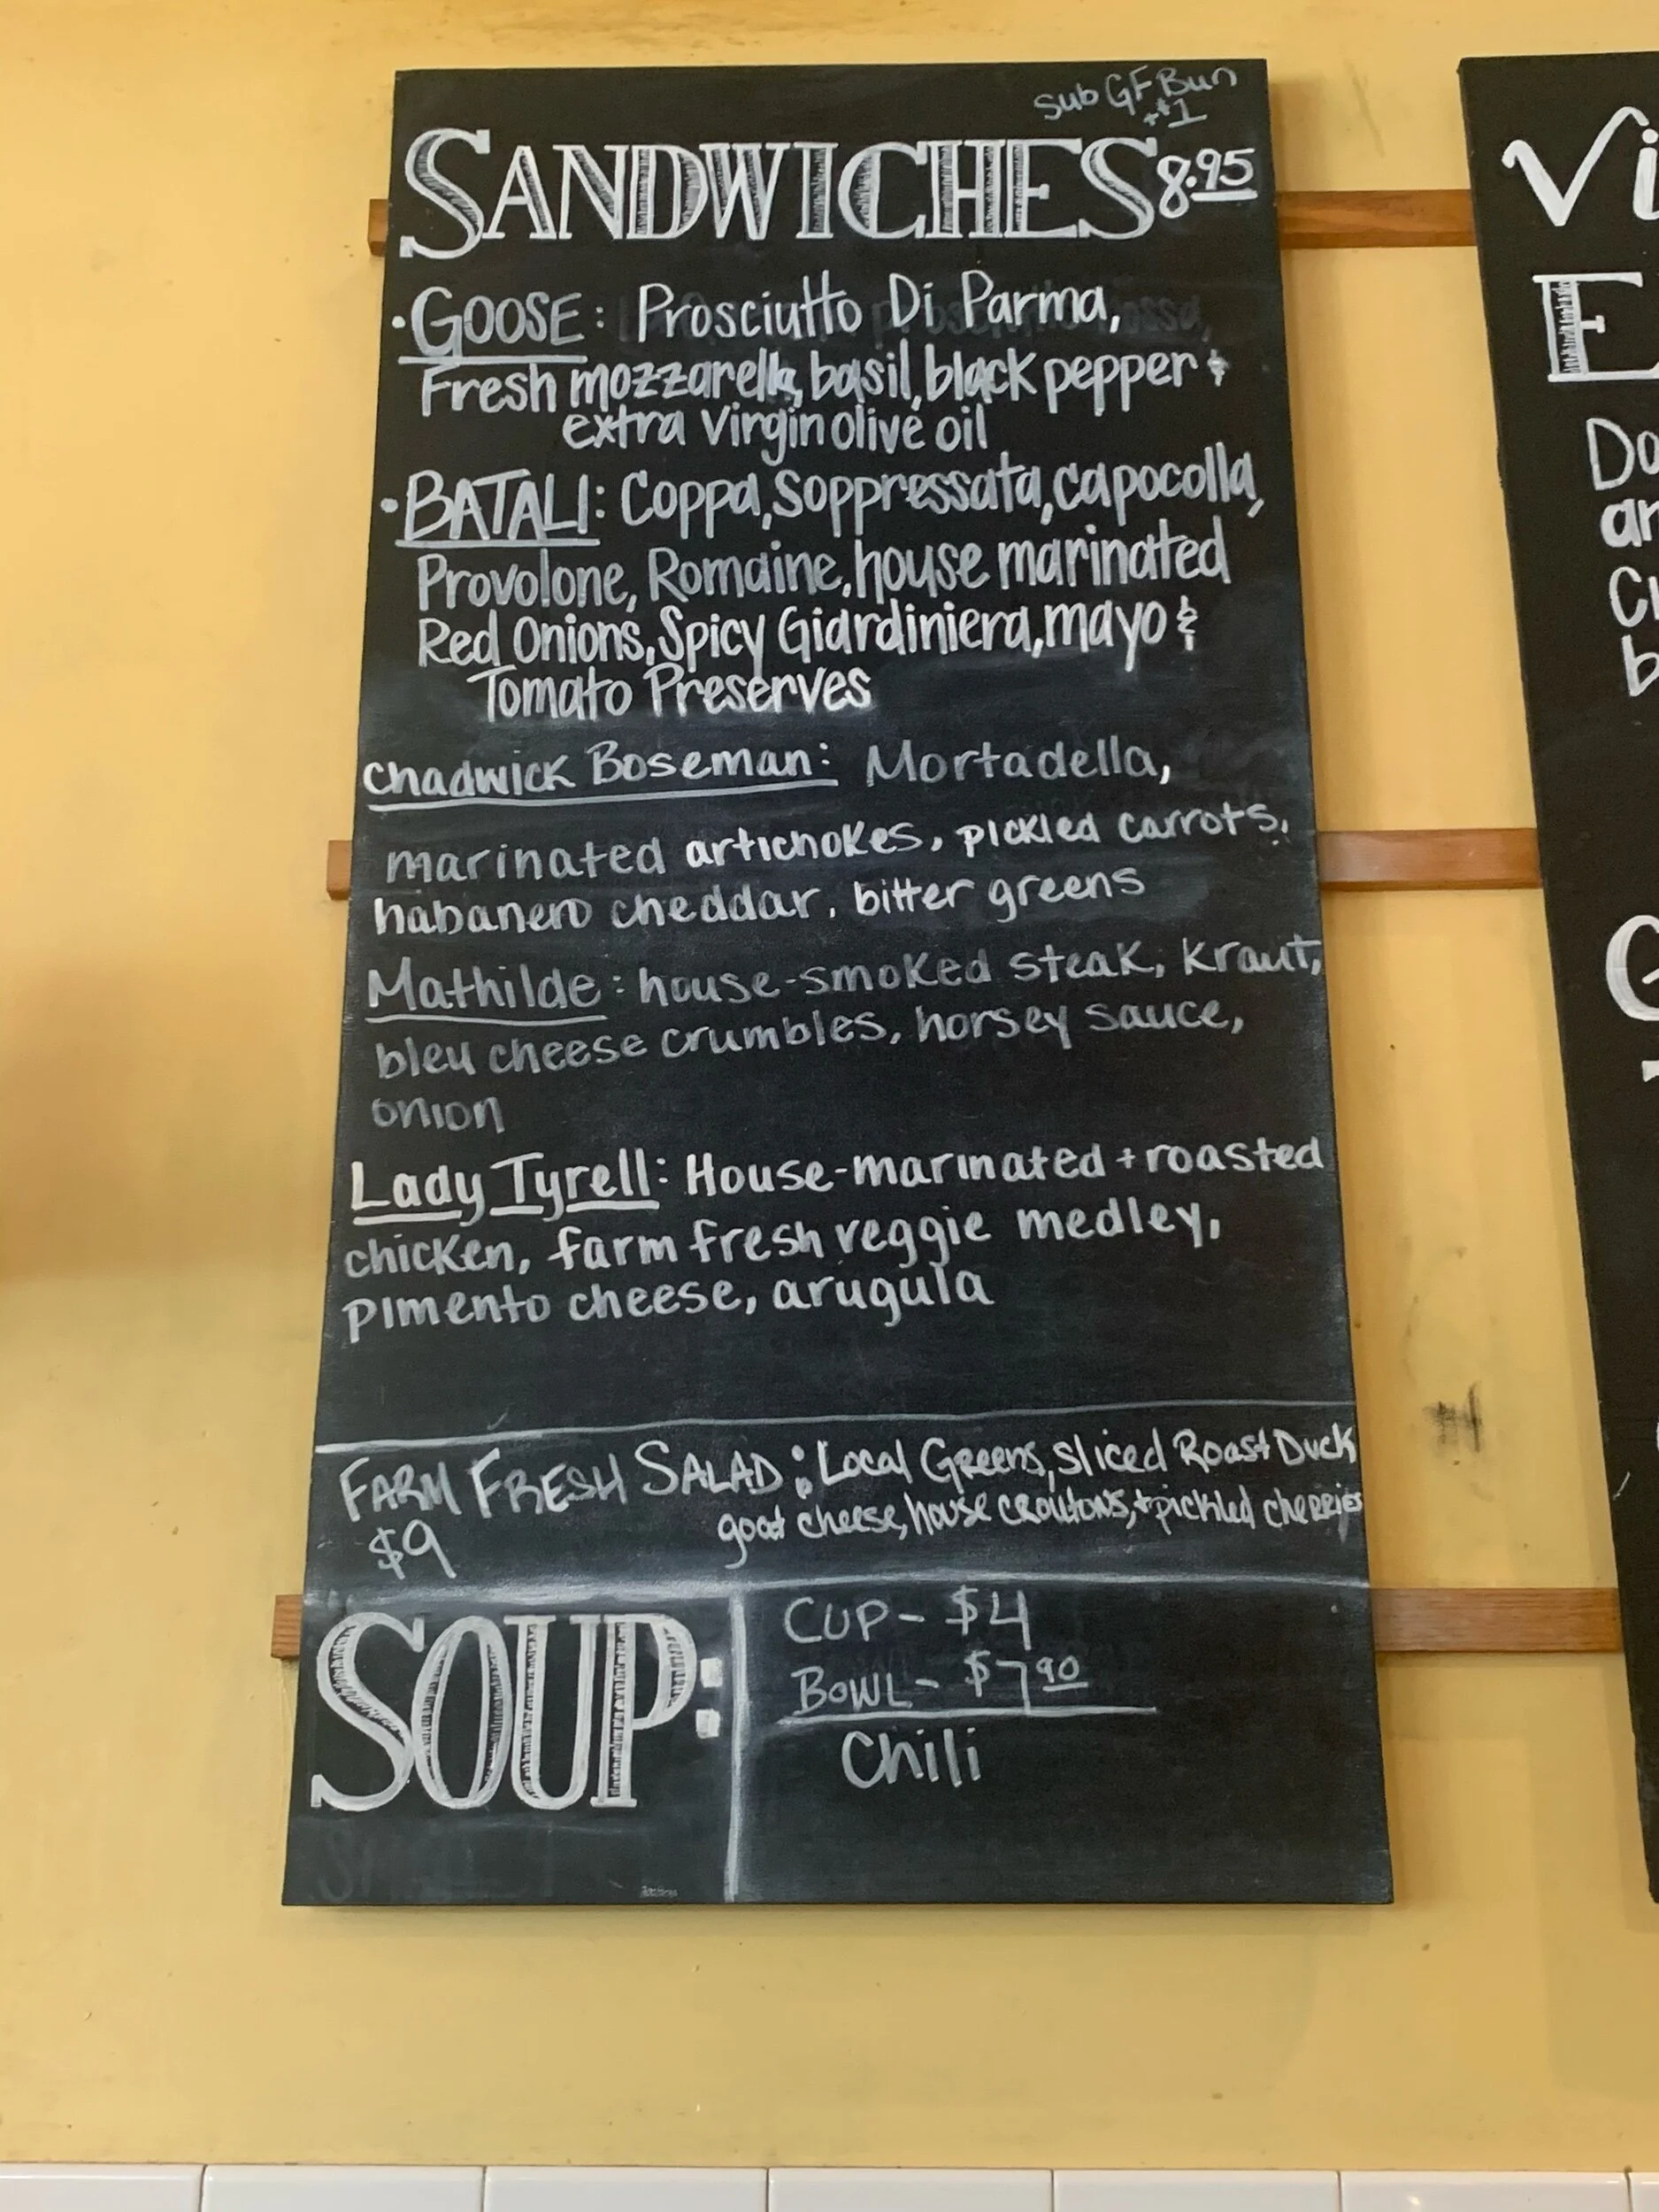 Sub GF Bun
+$1
SANDWICHES 8.95
·GOOSE: Prosciutto Di Parma,
Fresh mozzarella, basil, black pepper &
extra virgin olive oil
·BATALI: Coppa, Soppressata, capocolla,
Provolone, Romaine, house marinated
Red Onions, Spicy Giardiniera, mayo &
Tomato Preserves
Chadwick Boseman: Mortadella,
marinated artichokes, pickled carrots,
habanero cheddar, bitter greens
Mathilde: house-smoked steak, kraut,
bleu cheese crumbles, horsey sauce,
onion
Lady Tyrell: House-marinated + roasted
chicken, farm fresh veggie medley,
pimento cheese, arugula
FARM FRESH SALAD: Local Greens, sliced Roast Duck
$9 goat cheese, house croutons, + pickled cherries
SOUP:
CUP- $4
BOWL- $7.90
Chili
Vi
E
Do
an
b
G